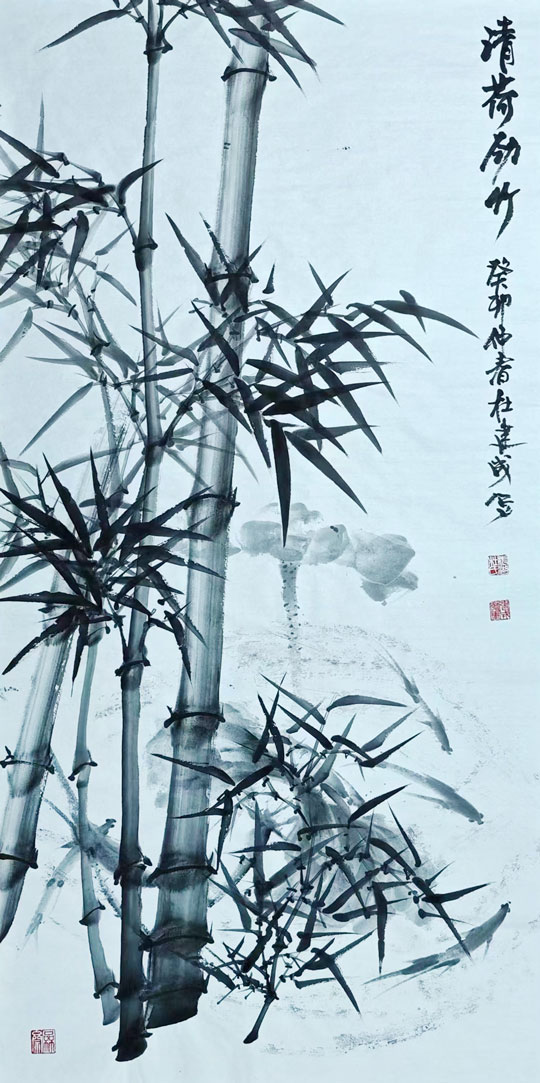 清荷劲竹
癸卯仲春杜建成写